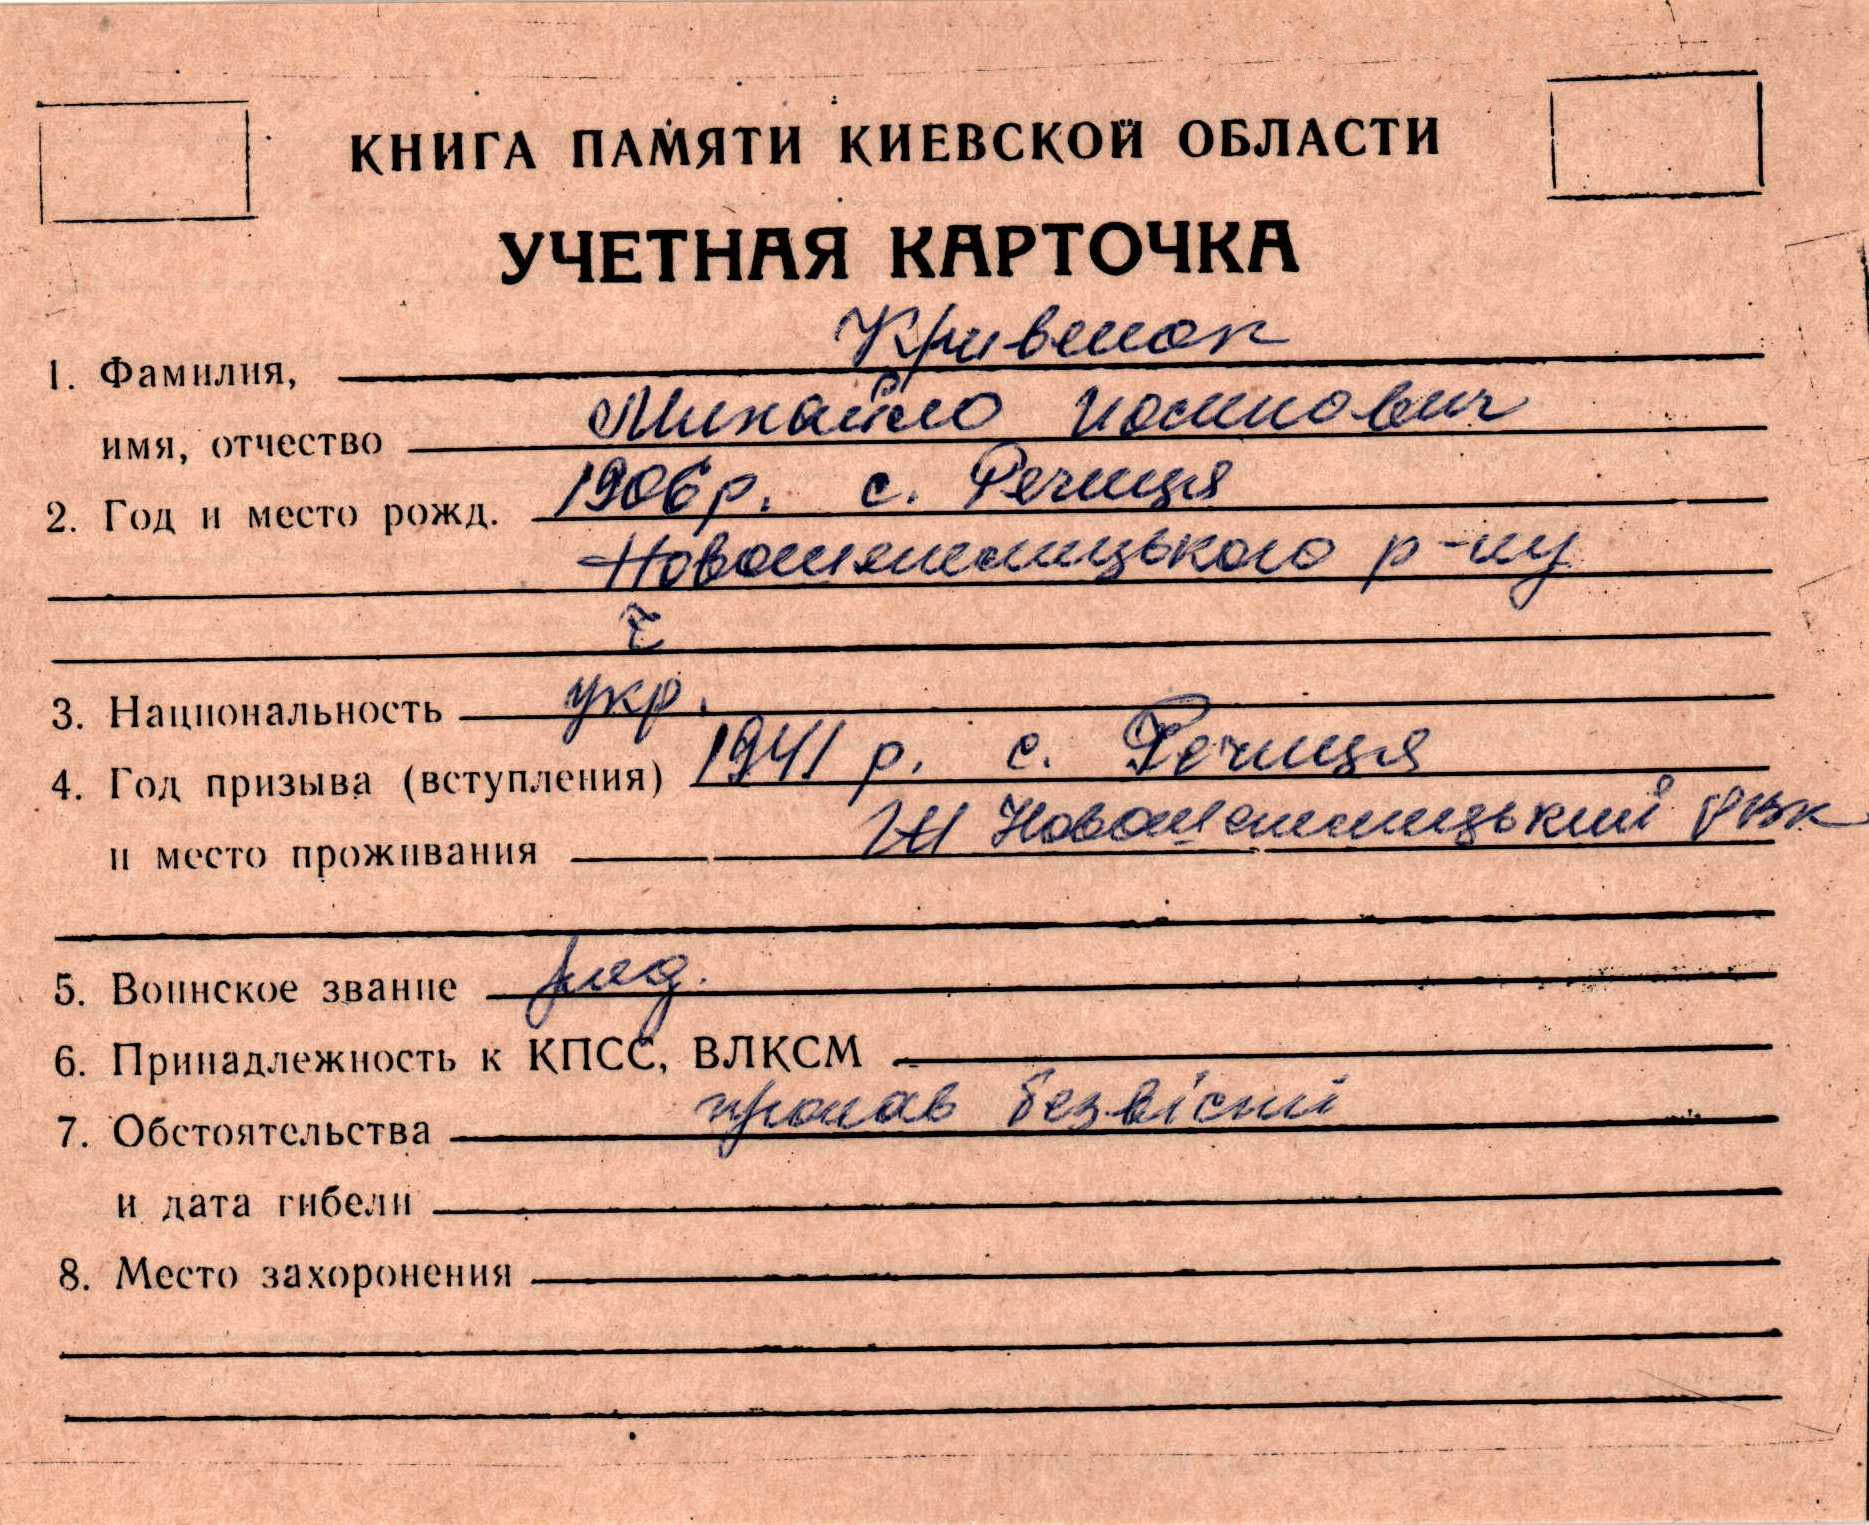 КНИГА ПАМЯТИ КИЕВСКОЙ ОБЛАСТИ
УЧЕТНАЯ КАРТОЧКА
1. Фамилия, Кривенок
имя, отчество Михайло Иосипович
2. Год и место рожд. 1906 р. с. Речиця
Новошепелицького р-ну
3. Национальность укр.
4. Год призыва (вступления) 1941 р. с. Речиця
и место проживания Новошепелицький РВК
5. Воинское звание ряд.
6. Принадлежность к КПСС, ВЛКСМ
7. Обстоятельства пропав безвісті
и дата гибели
8. Место захоронения